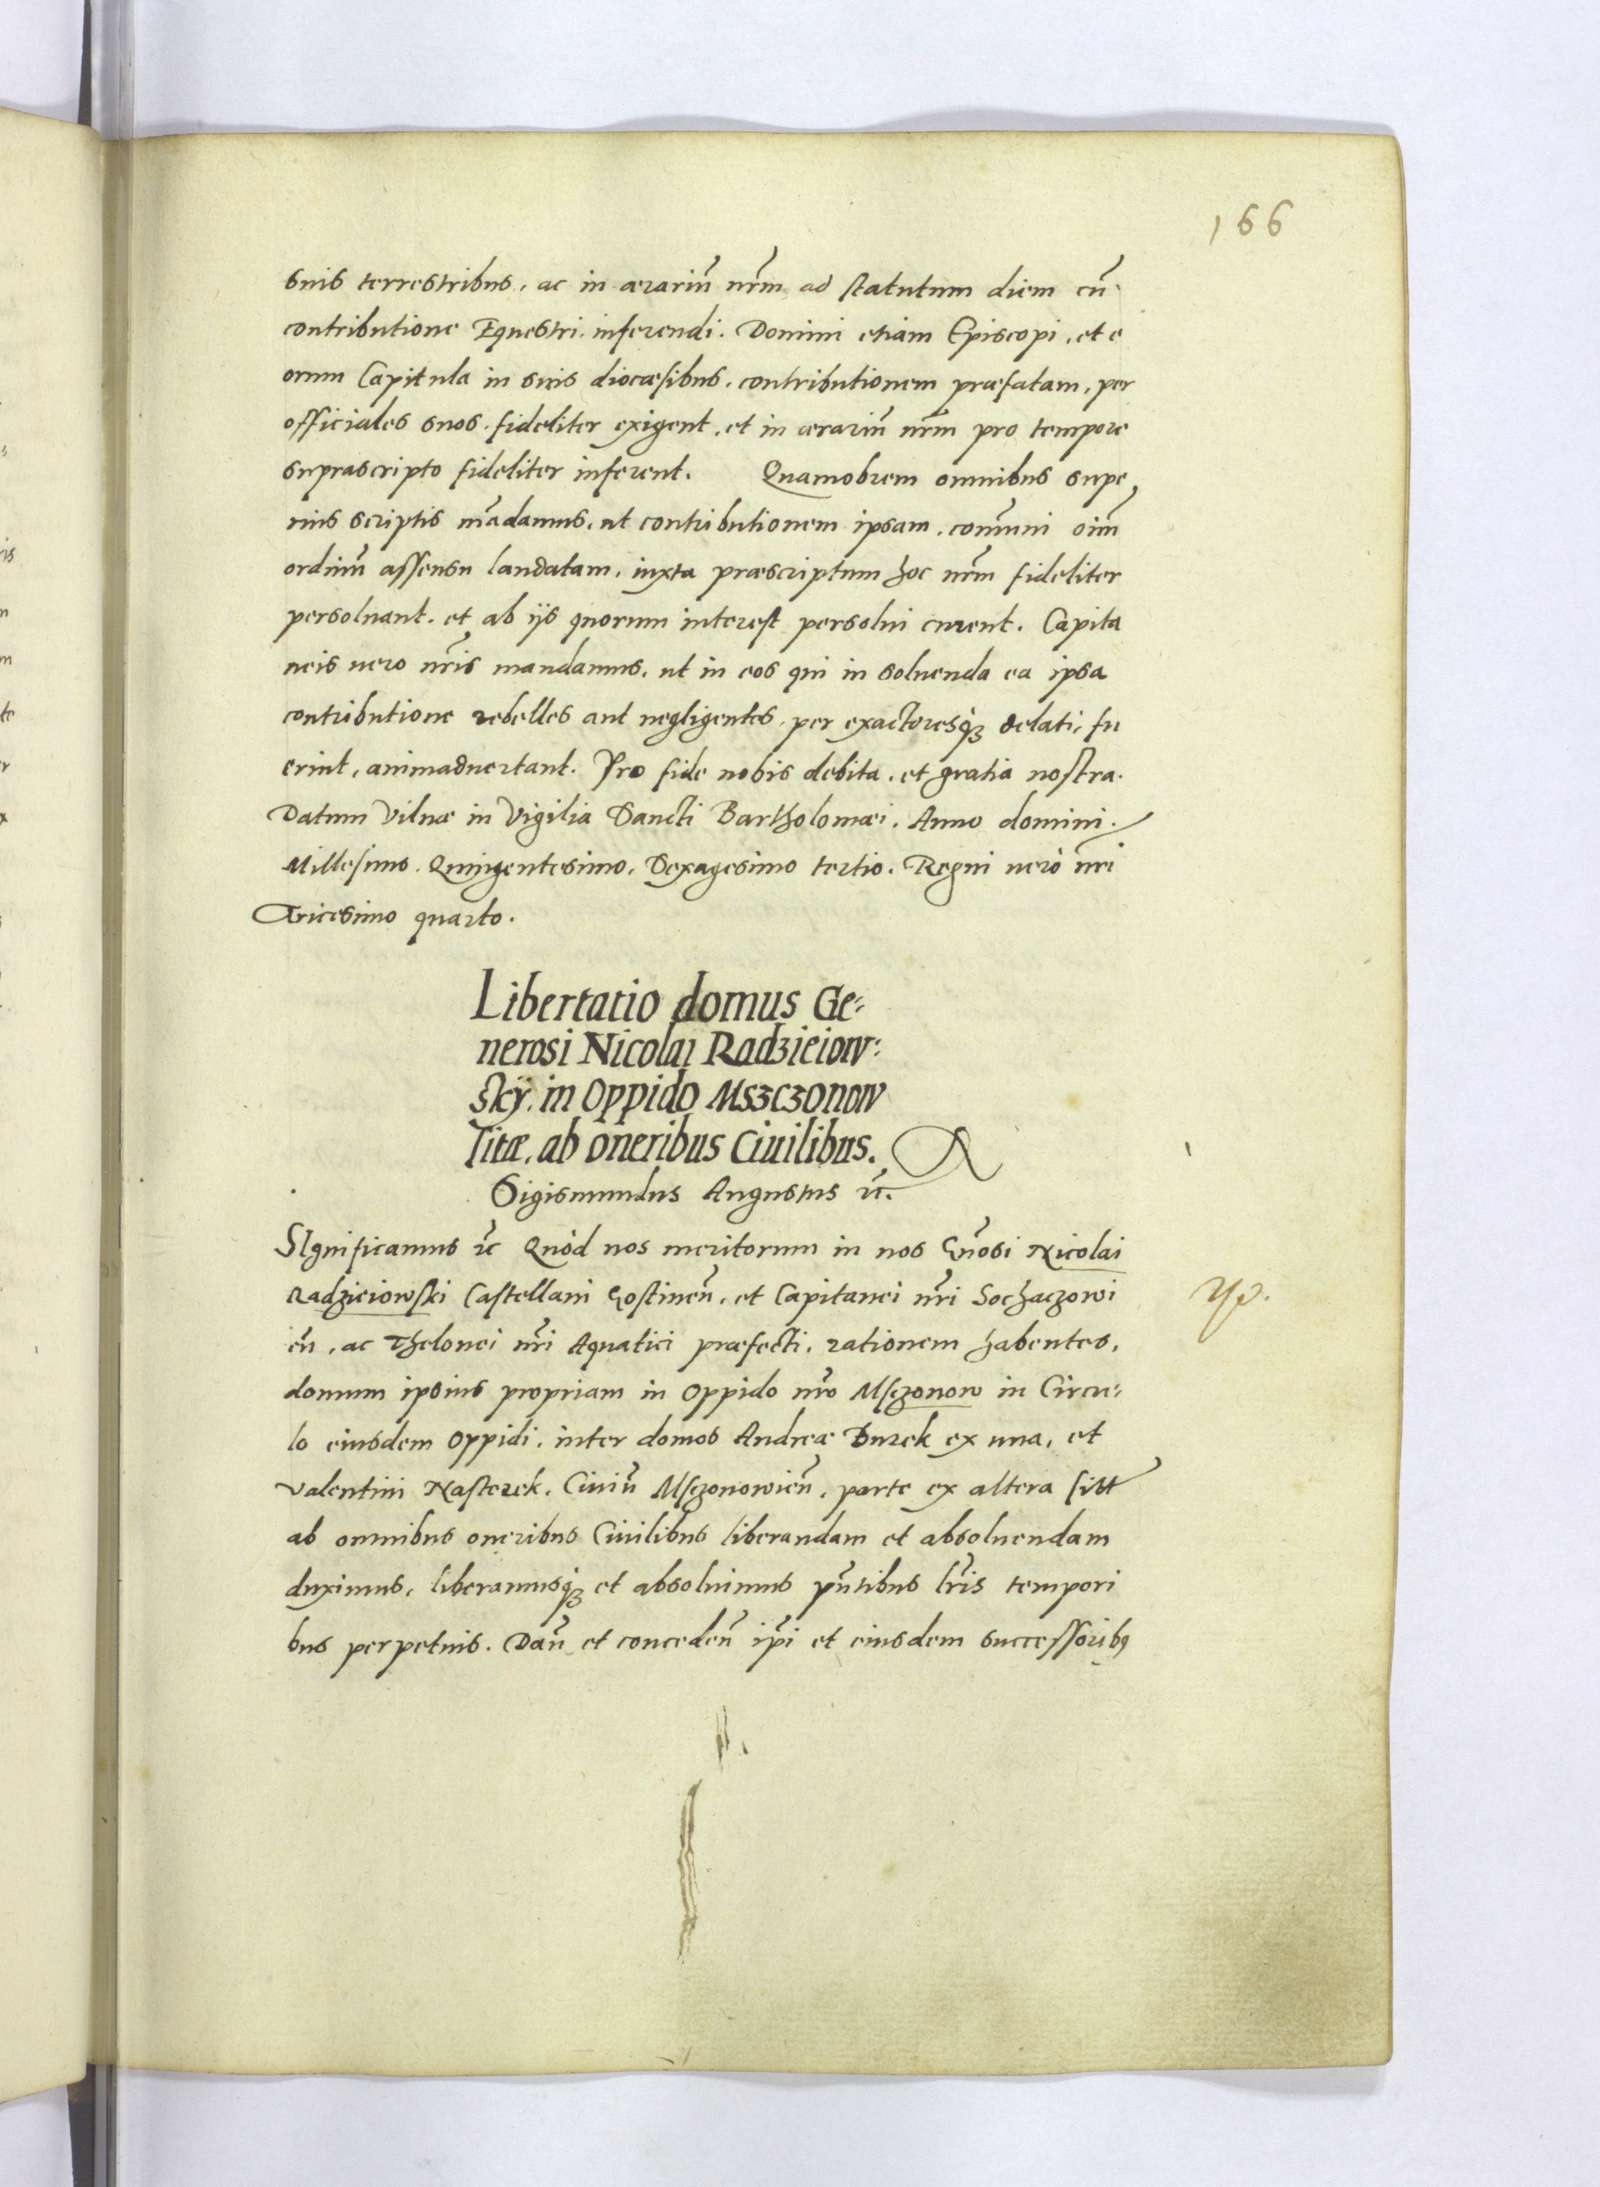 166
suis terrestribus, ac in ærariũ nr̃m ad statutum diem cũ
contributione Equestri inferendi. Domini etiam Episcopi, et e
orum Capitula in suis diocæsibus, contributionem præfatam, per
officiales suos fideliter exigent, et in ærariũ nr̃m pro tempore
suprascripto fideliter inferent. Quamobrem omnibus supe,
rius scriptis mãdamus, ut contributionem ipsam, com̃uni oim̃
ordinũ assensu laudatam, iuxta præscriptum hoc nr̃m fideliter
persoluant, et ab ijs quorum interest persolui curent. Capita
neis uero nr̃is mandamus, ut in eos qui in soluenda ea ipsa
contributione rebelles aut negligentes per exactoresq̃ȝ delati, fu
erint, animaduertant. Pro fide nobis debita, et gratia nostra.
Datum Vilnæ in Vigilia Sancti Bartholomæi. Anno domini.
Millesimo. Quingentesimo. Sexagesimo tertio. Regni uerò nr̃i
Tricesimo quarto.
Libertatio domus Ge-
nerosi Nicolai Radzieiow-
skÿ, in Oppido Mszczonow
sitæ, ab oneribus Ciuilibus.
Sigismundus Augustus ꝛc̃.
SIgnificamus ꝛc̃ Quòd nos meritorum in nos Gñosi Nicolai
Radzieiowski Castellani Gostineñ, et Capitanei nr̃i Sochaczowi
eñ, ac Thelonei nr̃i Aquatici præfecti, rationem habentes,
domum ipsius propriam in Oppido nr̃o Msczonow in Circu-
lo eiusdem Oppidi, inter domos Andreæ Burek ex una, et
Valentini Nasterek, Ciuiũ Msczonowieñ, parte ex altera sitt̃
ab omnibus oneribus Ciuilibus liberandam et absoluendam
duximus, liberamusq̃ȝ et absoluimus pñtibus lr̃is tempori
bus perpetuis. Dañ et concedeñ ip̃i et eiusdem successoribꝰ